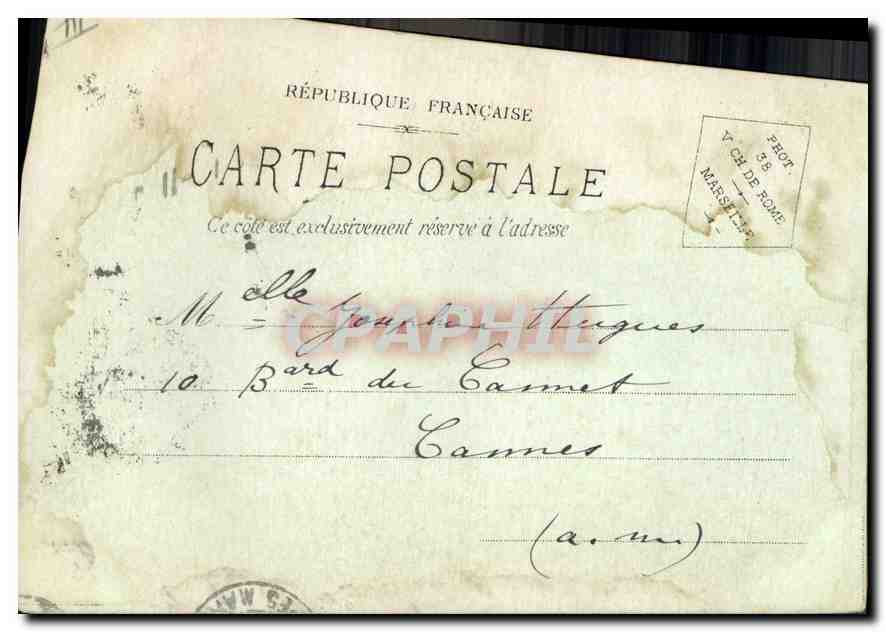 RÉPUBLIQUE FRANÇAISE
CARTE POSTALE
Ce côté est exclusivement réservé à l'adresse
PHOT.
38
V CH DE ROME
MARSEILLE
Melle Hugues
CPAPHIL
10 Bard du Cannet
Cannes
(a. m.)